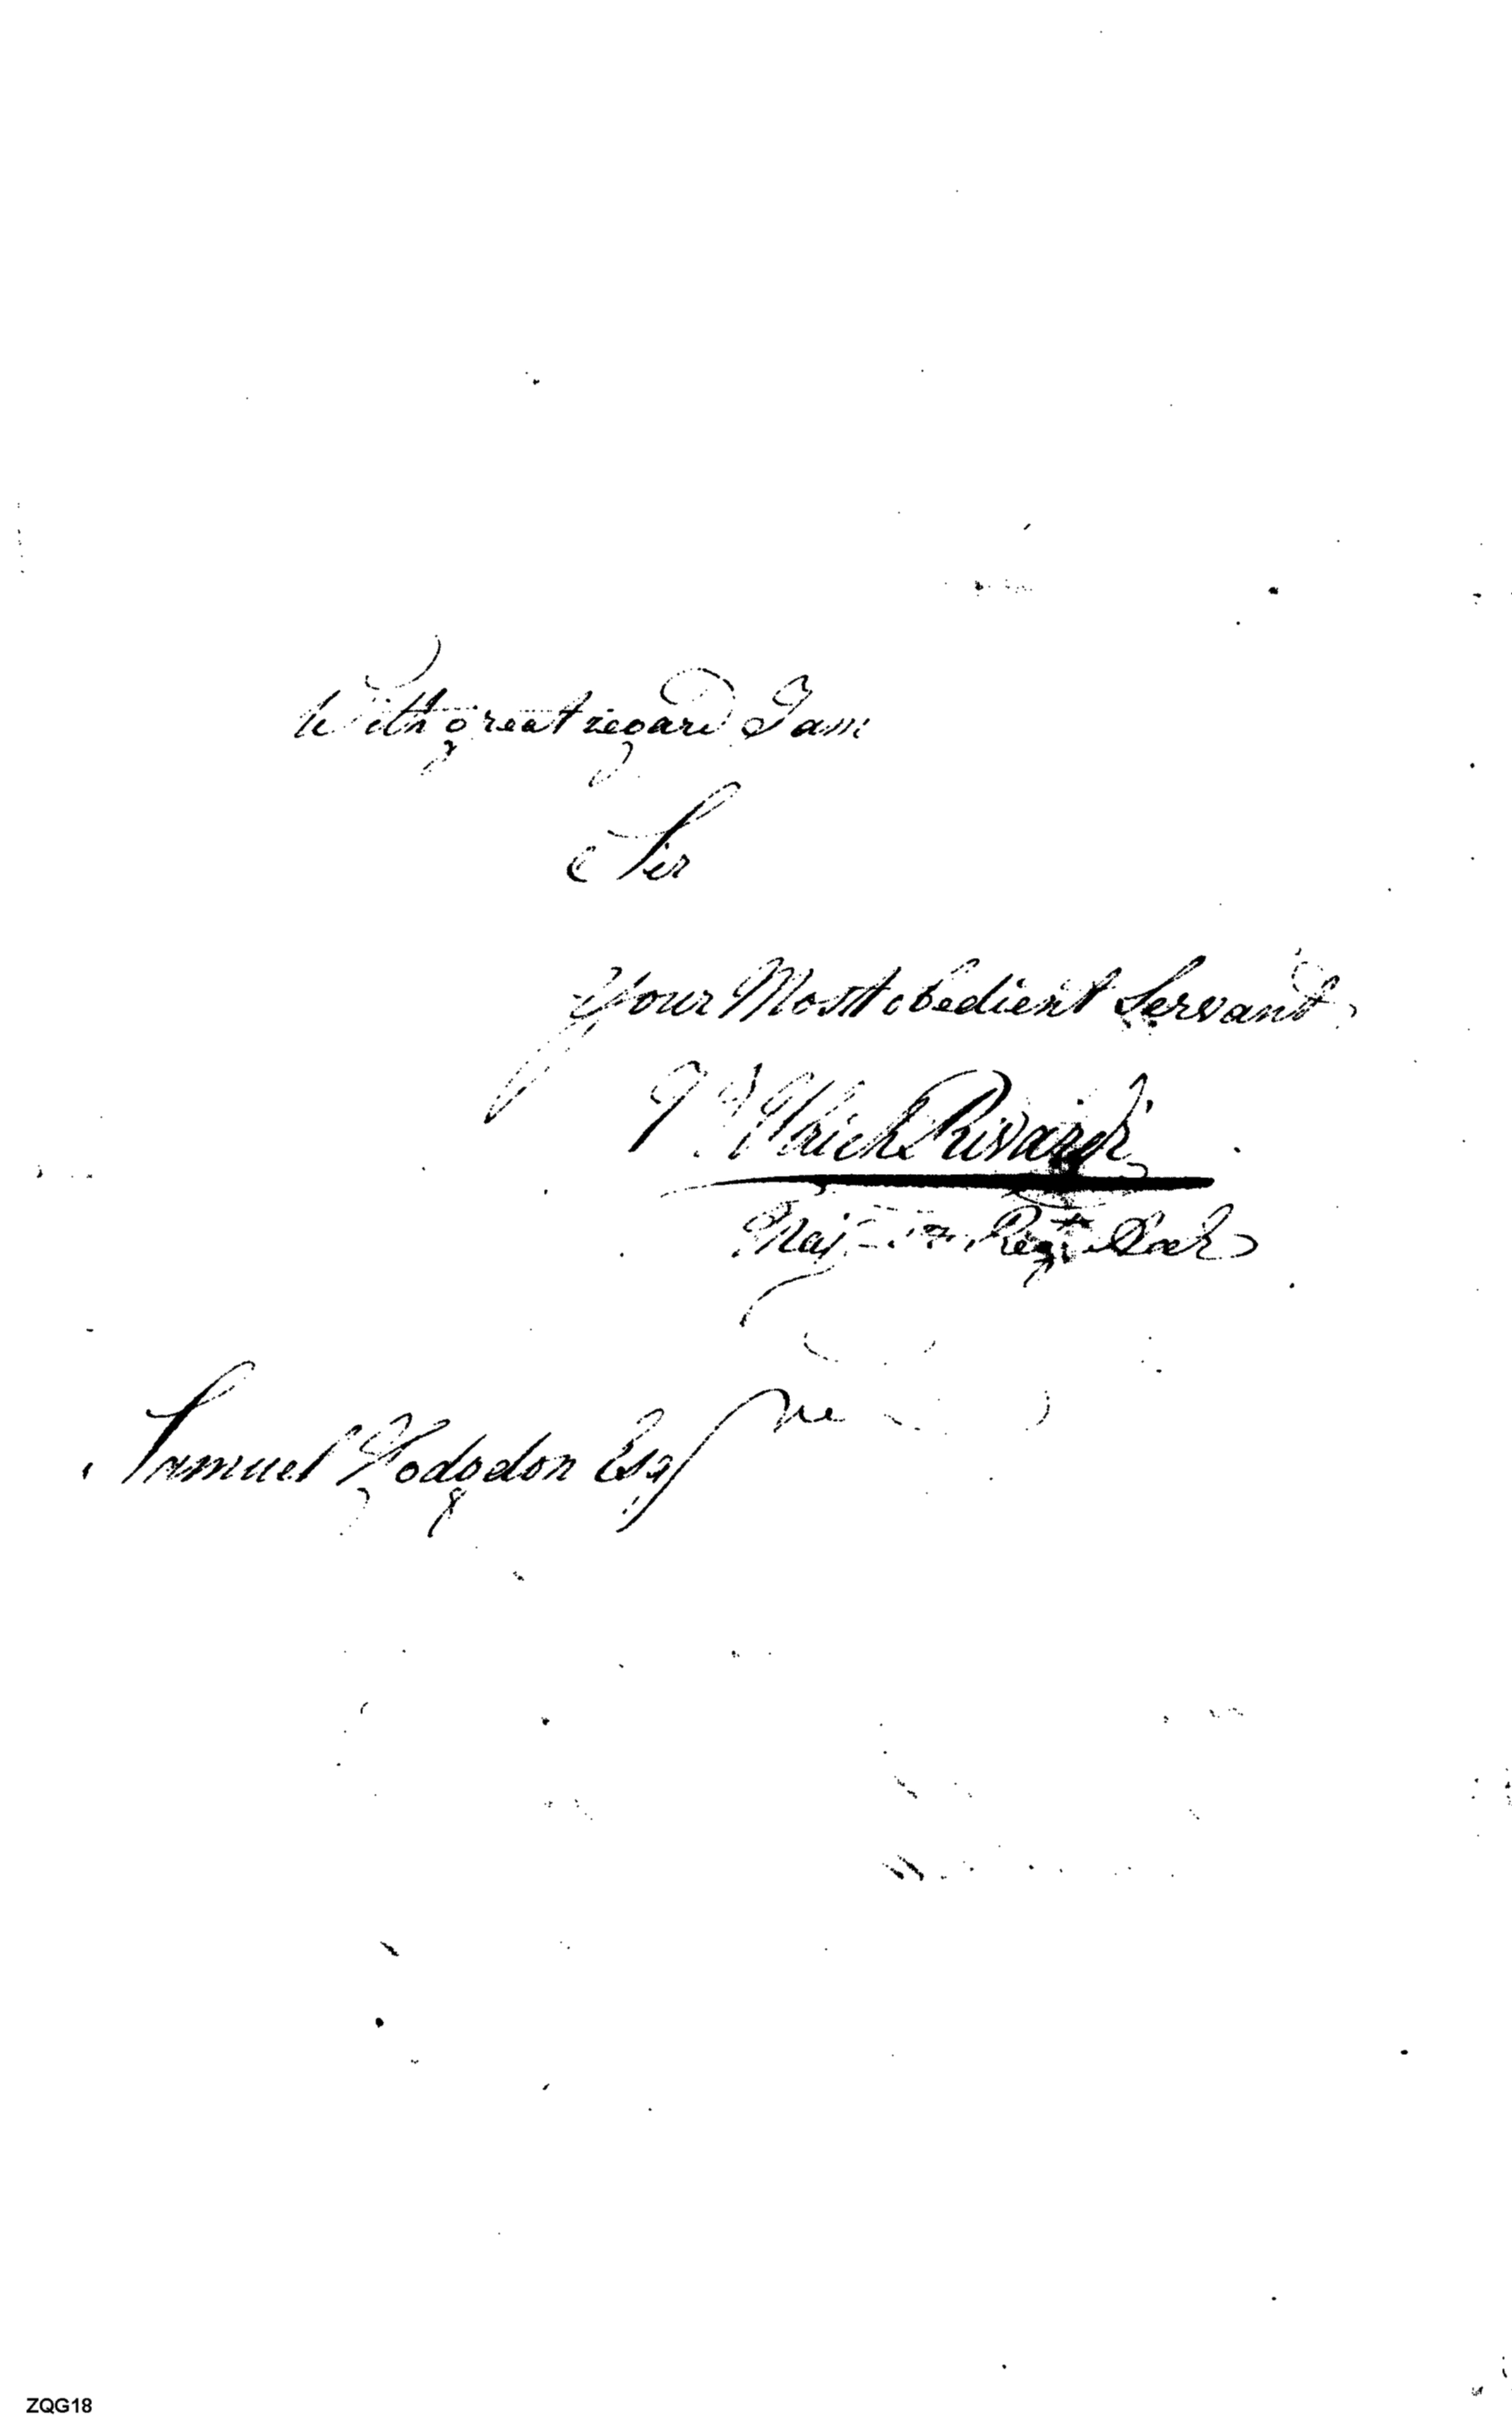 With great regard I am
Sir
Your Most obedient Servant
J. J. Ulrich Rivardi
Maj. Regt
Samuel Hodgdon Esq
ZQG18